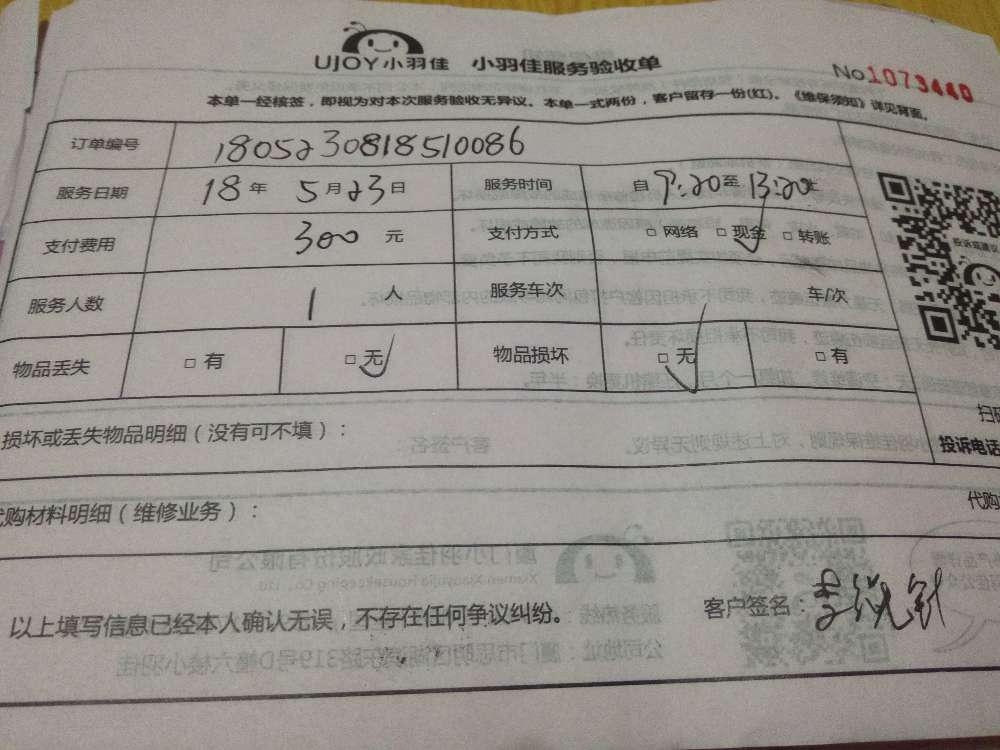 UJOY小羽佳 小羽佳服务验收单 No1073440
本单一经核签，即视为对本次服务验收无异议。本单一式两份，客户留存一份(红)。《维保须知》详见背面。
订单编号 180523081851 0086
服务日期 18年 5月23日 服务时间 自9:20至13:20止
支付费用 300 元 支付方式 □网络 □现金 □转账
服务人数 1 人 服务车次 车/次
物品丢失 □有 □无 物品损坏 □无 □有
投诉或建议
损坏或丢失物品明细（没有可不填）：
投诉电话
购材料明细（维修业务）： 代购
以上填写信息已经本人确认无误，不存在任何争议纠纷。 客户签名：